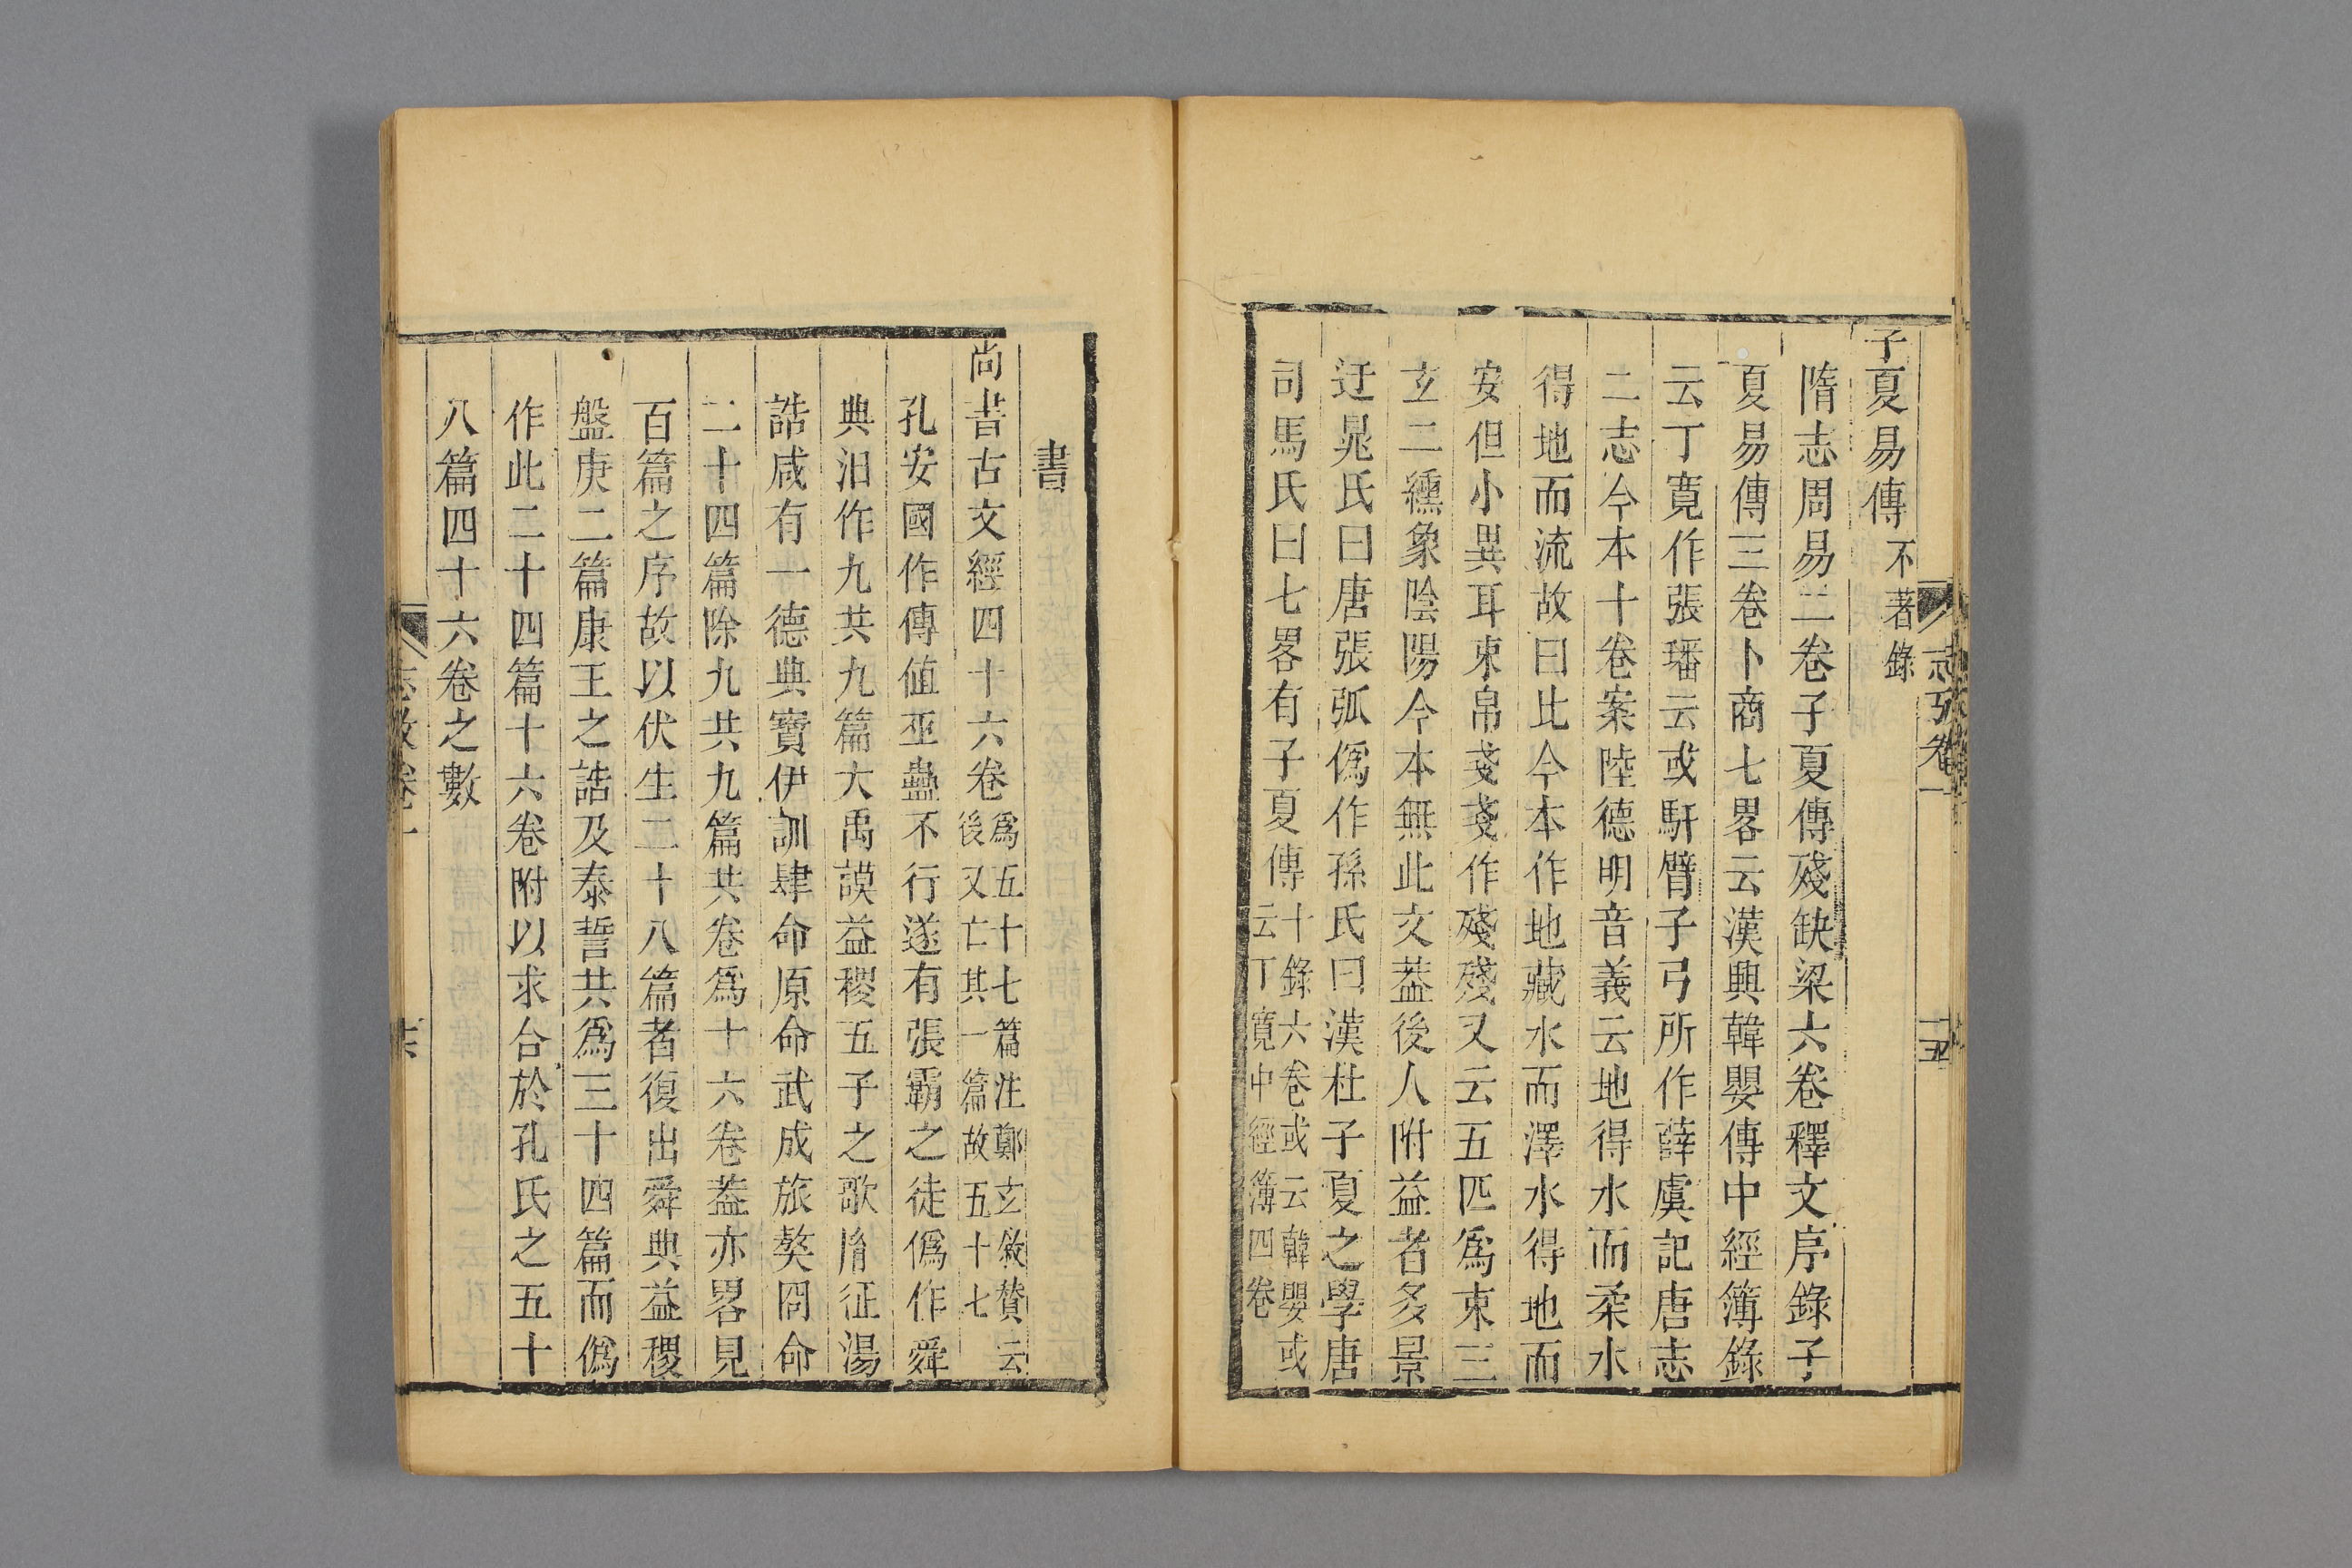 志攷卷一
十五
子夏易傳不著錄
隋志周易二卷子夏傳殘缺梁六卷釋文序錄子
夏易傳三卷卜商七畧云漢興韓嬰傳中經簿錄
云丁寬作張璠云或馯臂子弓所作薛虞記唐志
二志今本十卷案陸德明音義云地得水而柔水
得地而流故曰比今本作地藏水而澤水得地而
安但小異耳束帛戔戔作殘殘又云五匹爲束三
玄二纁象陰陽今本無此文葢後人附益者多景
迂晁氏曰唐張弧僞作孫氏曰漢杜子夏之學唐
司馬氏曰七畧有子夏傳十錄六卷或云韓嬰或
云丁寬中經簿四卷
書
尚書古文經四十六卷爲五十七篇注鄭玄敘贊云
後又亡其一篇故五十七
孔安國作傳値巫蠱不行遂有張霸之徒僞作舜
典汨作九共九篇大禹謨益稷五子之歌胤征湯
誥咸有一德典寶伊訓肆命原命武成旅獒冏命
二十四篇除九共九篇共卷爲十六卷葢亦畧見
百篇之序故以伏生二十八篇者復出舜典益稷
盤庚二篇康王之誥及泰誓共爲三十四篇而僞
作此二十四篇十六卷附以求合於孔氏之五十
八篇四十六卷之數
志攷卷一